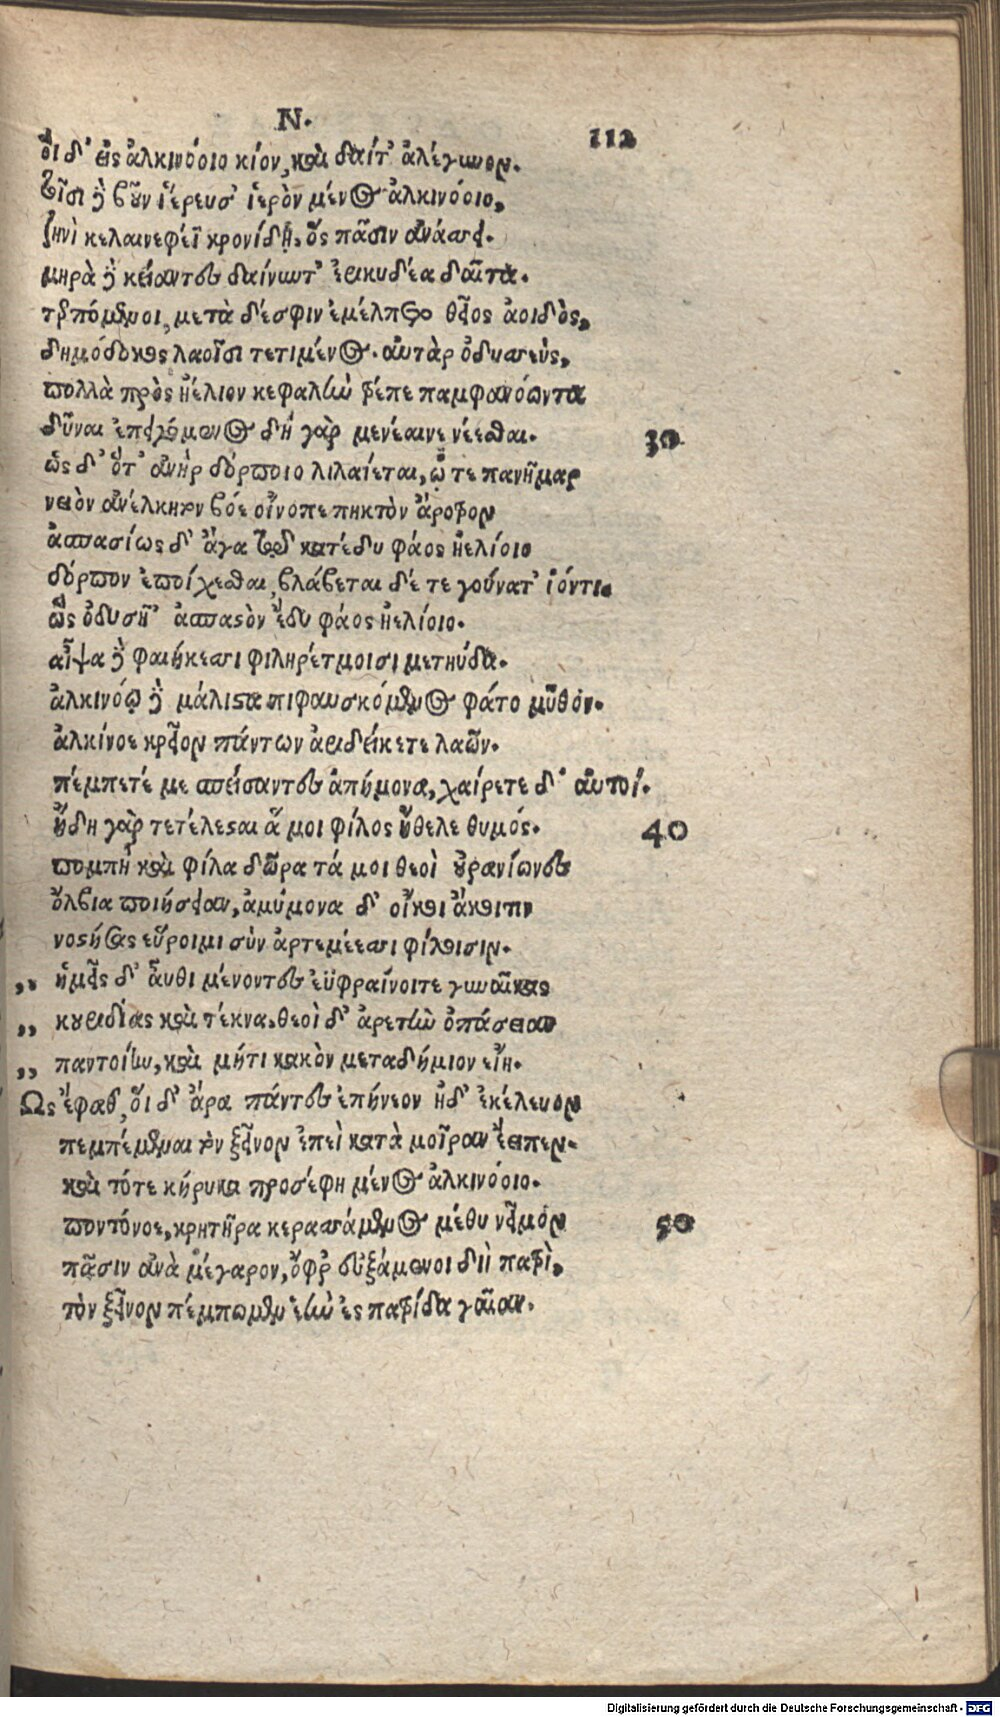 Ν.
112
οἱ δ’ εἰς ἀλκινόοιο κίον, καὶ δαίτ’ ἀλέγυνον.
τοῖσι δὲ βοῦν ἱέρευσ’ ἱερὸν μένος ἀλκινόοιο,
ζηνὶ κελαινεφέϊ κρονίδῃ, ὃς πᾶσιν ἀνάσσει.
μηρὰ δὲ κείαντες δαίνυντ’ ἐρικυδέα δαῖτα.
τερπόμενοι, μετὰ δέ σφιν ἐμέλπετο θεῖος ἀοιδὸς,
δημόδοκος λαοῖσι τετιμένος. αὐτὰρ ὀδυσσεὺς,
πολλὰ πρὸς ἠέλιον κεφαλὴν τρέπε παμφανόωντα
δῦναι ἐπειγόμενος δὴ γὰρ μενέαινε νέεσθαι.
30
ὡς δ’ ὅτ’ ἀνὴρ δόρποιο λιλαίεται, ᾧ τε πανῆμαρ
νειὸν ἀνέλκητον βόε οἴνοπε πηκτὸν ἄροτρον
ἀσπασίως δ’ ἄρα τῷδε κατέδυ φάος ἠελίοιο
δόρπον ἐποίχεσθαι, βλάβεται δέ τε γούνατ’ ἰόντι.
ὣς ὀδυσῆϊ ἀσπαστὸν ἔδυ φάος ἠελίοιο.
αἶψα δὲ φαιήκεσσι φιληρέτμοισι μετηύδα.
ἀλκινόῳ δὲ μάλιστα πιφαυσκόμενος φάτο μῦθόν.
ἀλκίνοε κρεῖον πάντων ἀριδείκετε λαῶν.
πέμπετέ με σπείσαντες ἀπήμονα, χαίρετε δ’ αὐτοί.
ἤδη γὰρ τετέλεσται ἅ μοι φίλος ἤθελε θυμός.
40
πομπὴ καὶ φίλα δῶρα τά μοι θεοὶ οὐρανίωνες
ὄλβια ποιήσειαν, ἀμύμονα δ’ οἴκοι ἄκοιτιν
νοστήσας εὕροιμι σὺν ἀρτεμέεσσι φίλοισιν.
,, ὑμεῖς δ’ αὖθι μένοντες ἐϋφραίνοιτε γυναῖκας
,, κουριδίας καὶ τέκνα. θεοὶ δ’ ἀρετὴν ὀπάσειαν
,, παντοίην, καὶ μήτι κακὸν μεταδήμιον εἴη.
Ὣς ἔφαθ, οἱ δ’ ἄρα πάντες ἐπήνεον ἠδ’ ἐκέλευον
πεμπέμεναι τὸν ξεῖνον ἐπεὶ κατὰ μοῖραν ἔειπεν.
καὶ τότε κήρυκα προσέφη μένος ἀλκινόοιο.
ποντόνοε, κρητῆρα κερασσάμενος μέθυ νεῖμον
50
πᾶσιν ἀνὰ μέγαρον, ὄφρ’ εὐξάμενοι διῒ πατρὶ,
τὸν ξεῖνον πέμπωμεν ἑὴν ἐς πατρίδα γαῖαν.
Digitalisierung gefördert durch die Deutsche Forschungsgemeinschaft - DFG